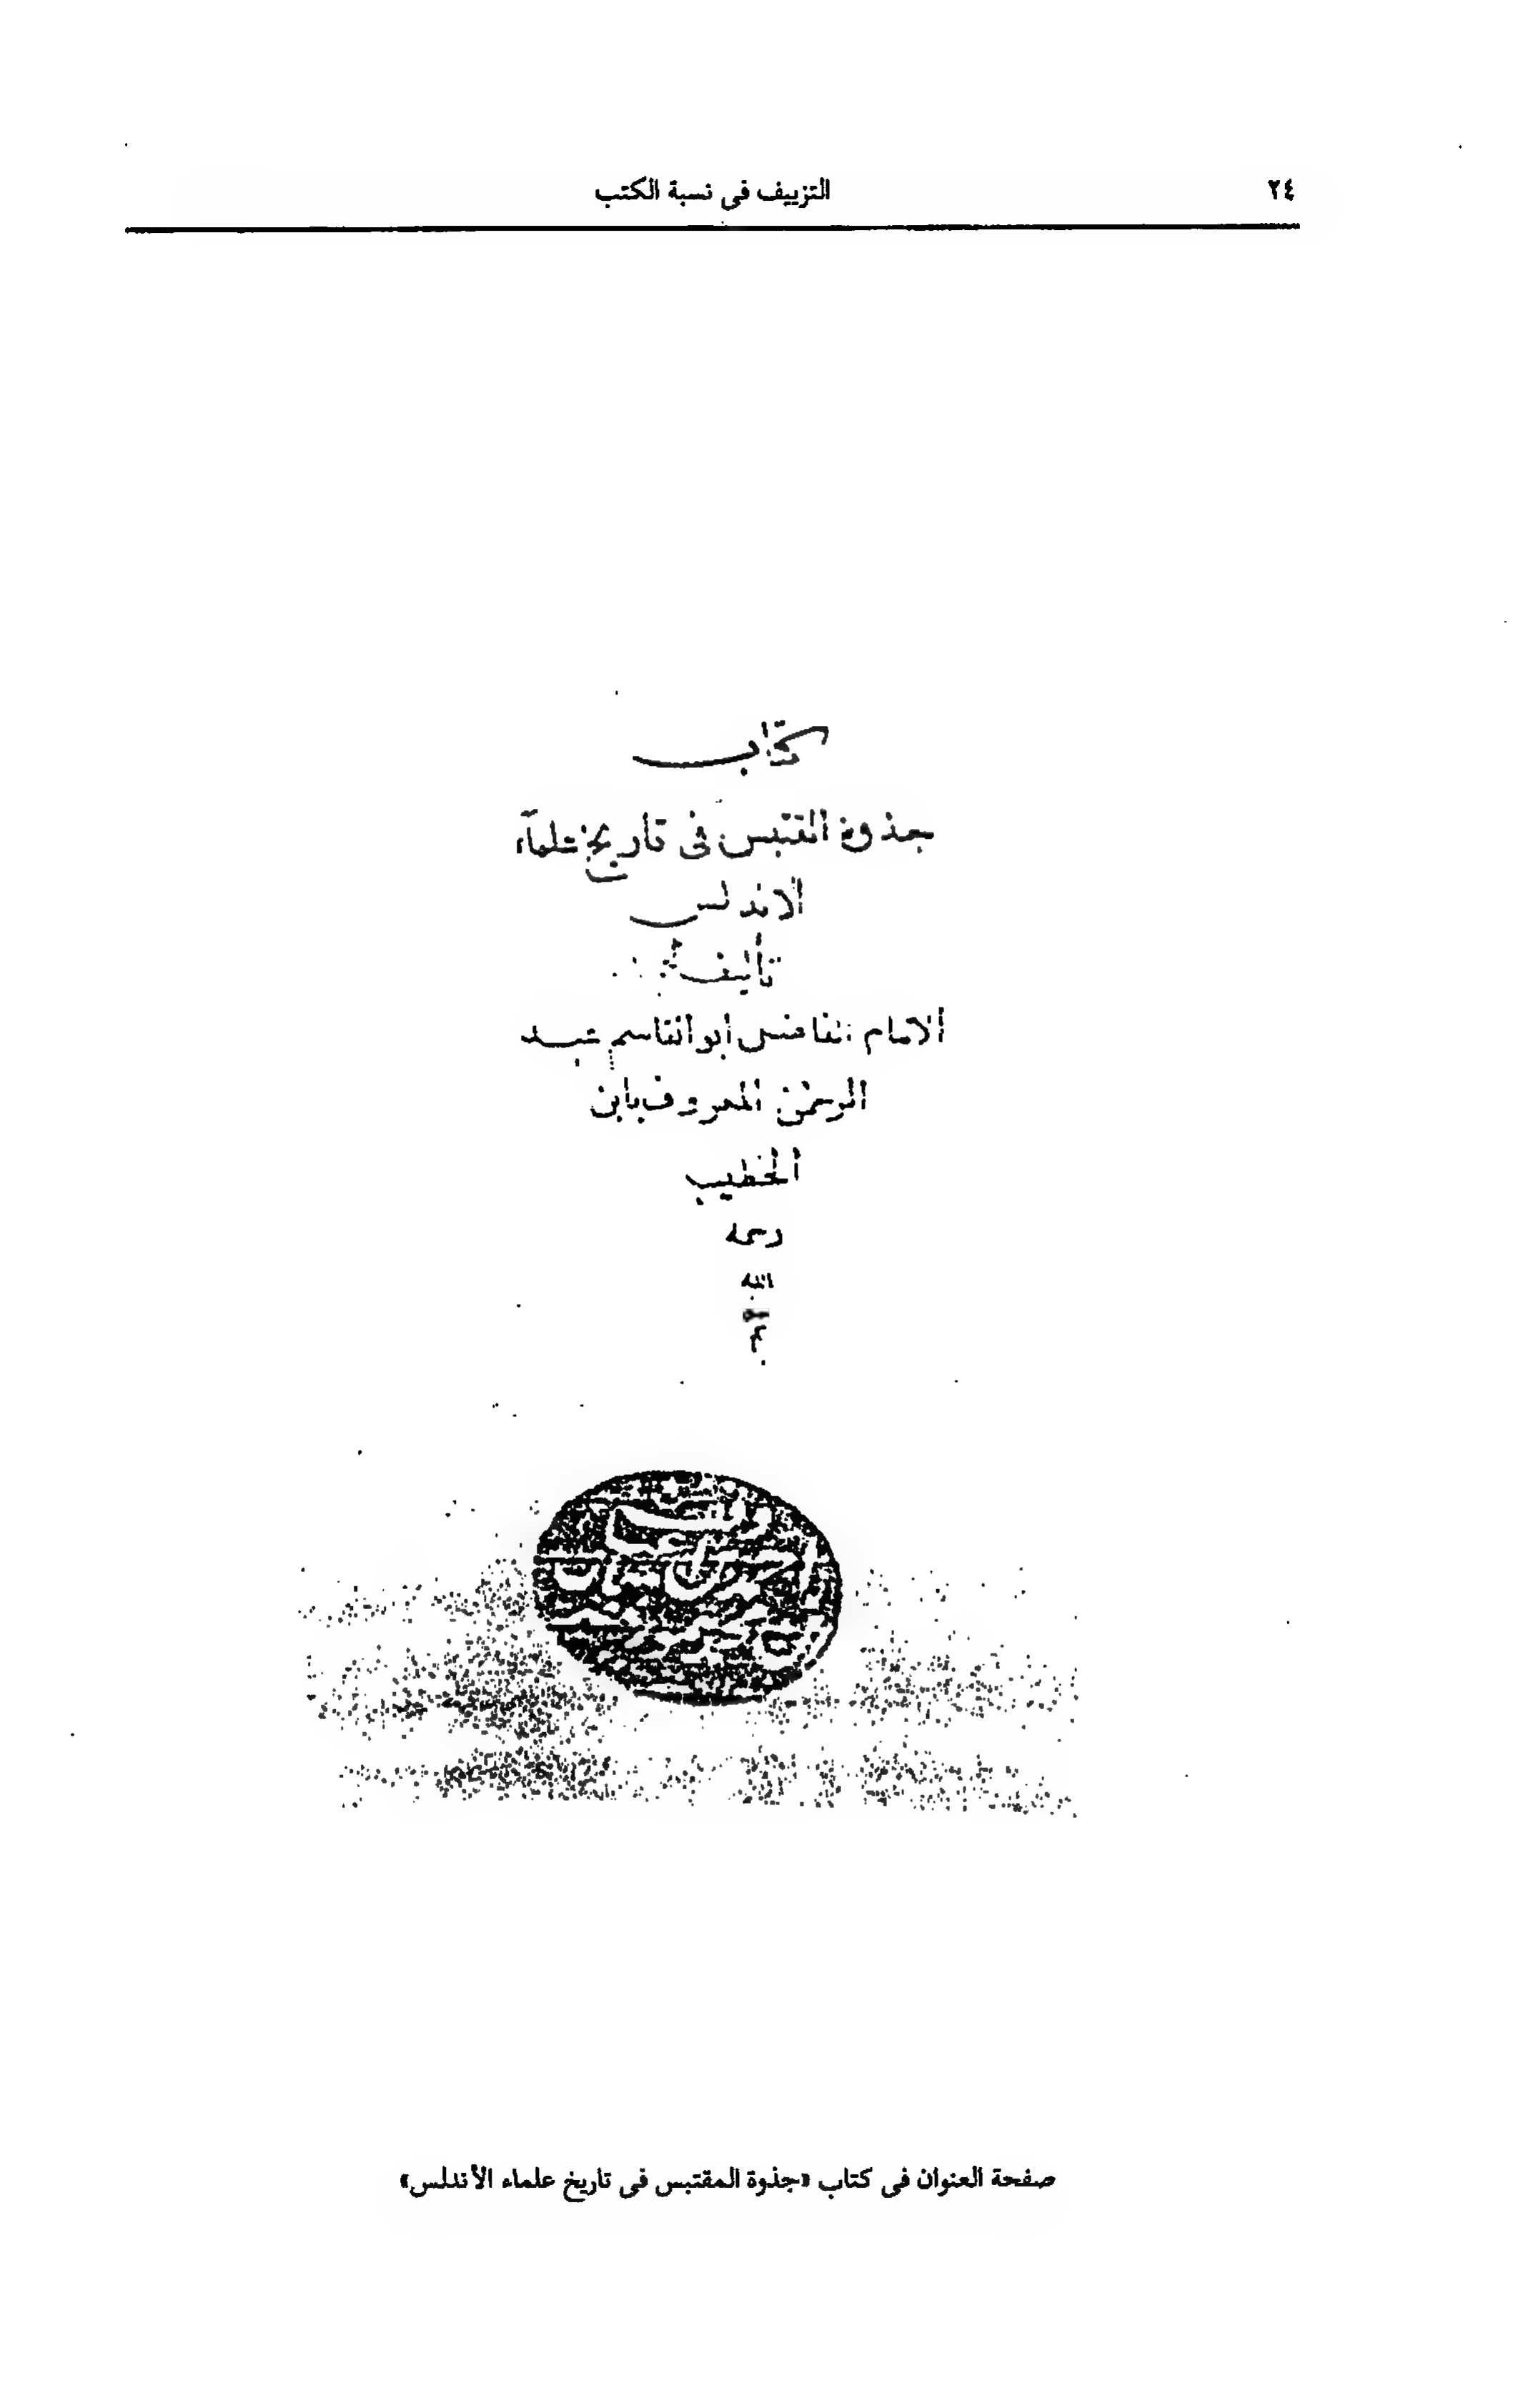 ٢٤
التزييف في نسبة الكتب
كتاب
جذوة المقتبس في تاريخ علمآء
الاندلس
تأليف
الامام القاضى ابو القاسم عبد
الرحمن المعروف بابن
الخطيب
رحمه
الله
صفحة العنوان في كتاب «جذوة المقتبس في تاريخ علماء الأندلس»